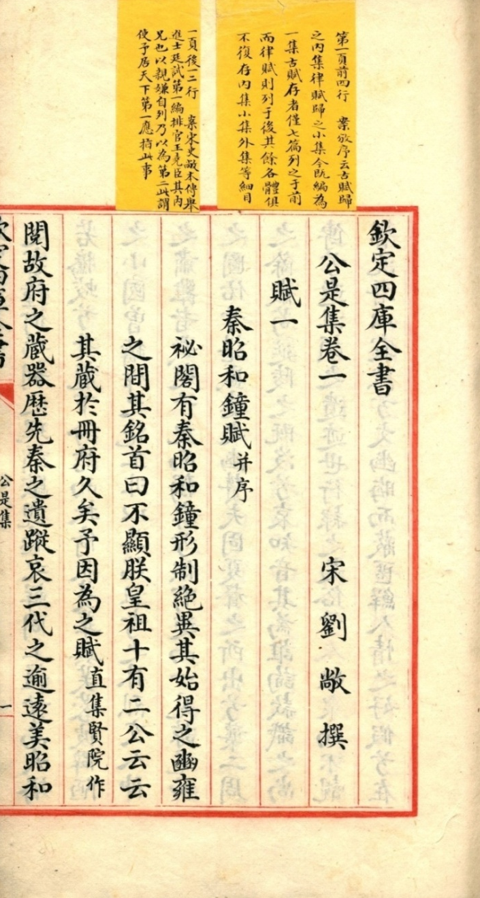 第一頁前四行 案敞序云古賦歸
之內集律賦歸之小集今既編為
一集古賦存者僅七篇列之于前
而律賦則列于後其餘各體俱
不復存內集小集外集等細目
一頁後一二行 案宋史敞本傳舉
進士廷試第一編排官王堯臣其內
兄也以親嫌自列乃以為第二此謂
使予居天下第一應指此事
欽定四庫全書
公是集卷一 宋 劉敞 撰
賦一
秦昭和鐘賦并序
祕閣有秦昭和鐘形制絶異其始得之豳雍
之間其銘首曰不顯朕皇祖十有二公云云
其藏於冊府久矣予因為之賦直集賢院作
閱故府之藏器歴先秦之遺蹤哀三代之逾遠美昭和
公是集
一